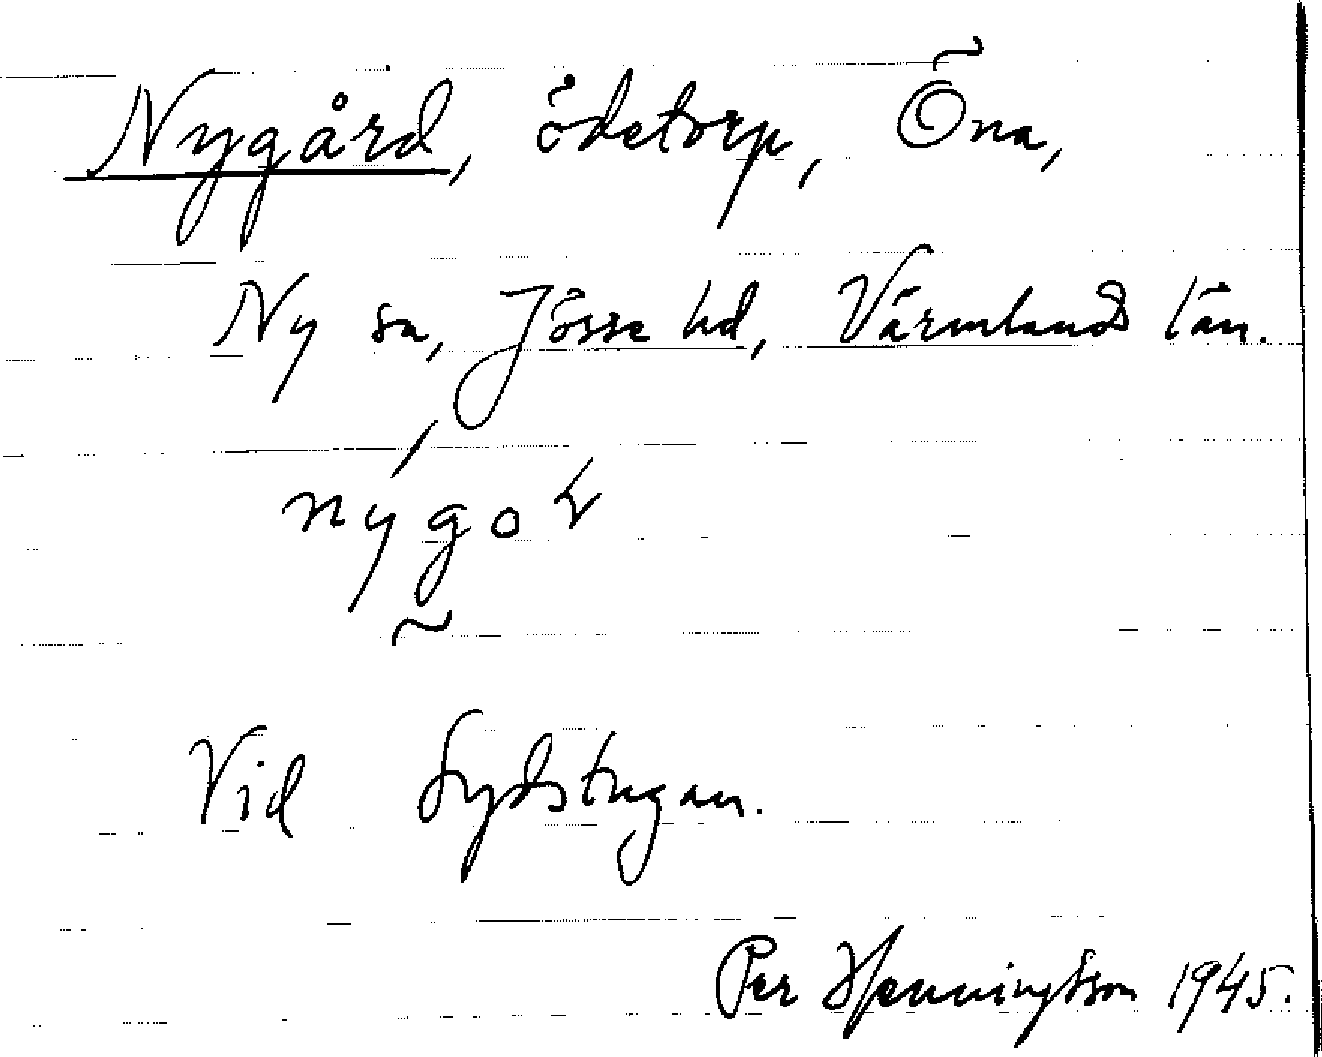 Nygård, ödetorp, Öna,
Ny sn, Jösse hd, Värmlands län.
Vid Sydstugan.
Per Henningsson 1945.